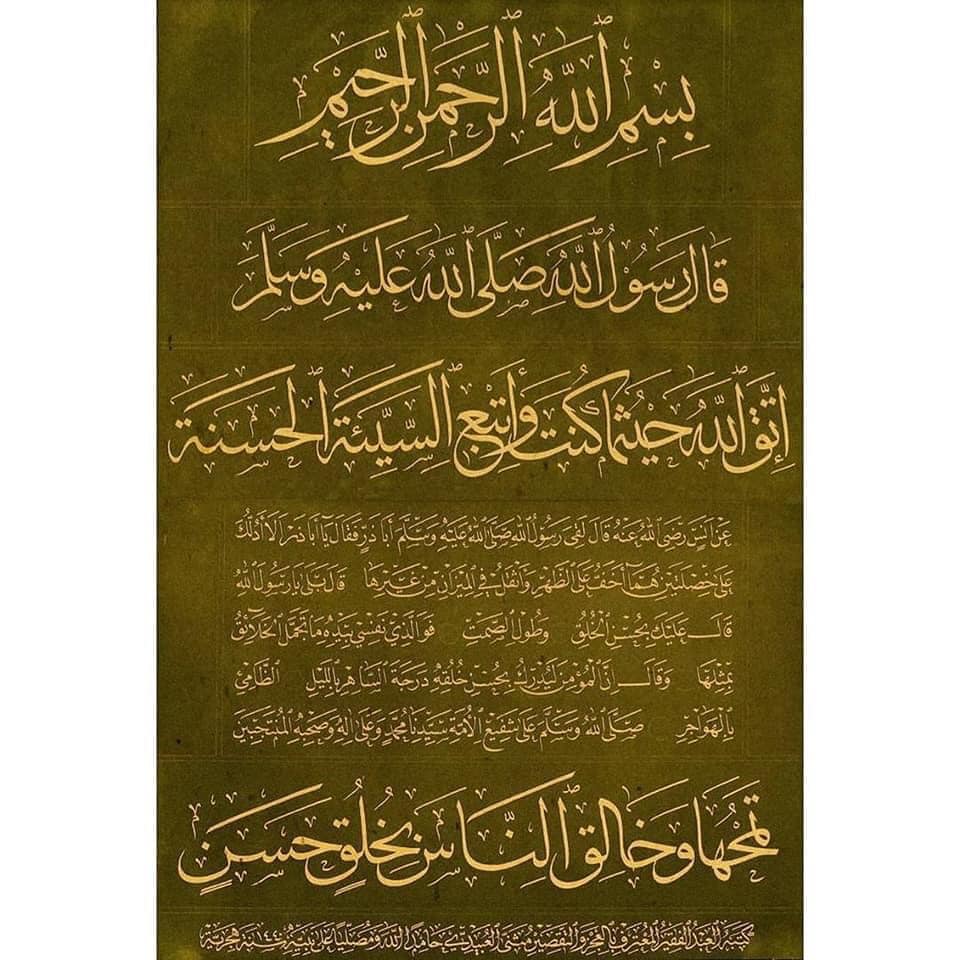 بِسْمِ اللَّهِ الرَّحْمَنِ الرَّحِيمِ
قَالَ رَسُولُ اللَّهِ صَلَّى اللَّهُ عَلَيْهِ وَسَلَّمَ
اِتَّقِ اللَّهَ حَيْثُمَا كُنْتَ وَأَتْبِعِ السَّيِّئَةَ الْحَسَنَةَ
عَنْ أَنَسٍ رَضِيَ اللهُ عَنْهُ قَالَ لَقِيَ رَسُولُ اللهِ صَلَّى اللهُ عَلَيْهِ وَسَلَّمَ أَبَا ذَرٍّ فَقَالَ يَا أَبَا ذَرٍّ أَلَا أَدُلُّكَ
عَلَى خَصْلَتَيْنِ هُمَا أَخَفُّ عَلَى الظَّهْرِ وَأَثْقَلُ فِي الْمِيزَانِ مِنْ غَيْرِهَا قَالَ بَلَى يَا رَسُولَ اللهِ
قَالَ عَلَيْكَ بِحُسْنِ الْخُلُقِ وَطُولِ الصَّمْتِ فَوَالَّذِي نَفْسِي بِيَدِهِ مَا تَجَمَّلَ الْخَلَائِقُ
بِمِثْلِهَا وَقَالَ إِنَّ الْمُؤْمِنَ لَيُدْرِكُ بِحُسْنِ خُلُقِهِ دَرَجَةَ السَّاهِرِ بِاللَّيْلِ الظَّامِئِ
بِالْهَوَاجِرِ صَلَّى اللهُ وَسَلَّمَ عَلَى شَفِيعِ الْأُمَّةِ سَيِّدِنَا مُحَمَّدٍ وَعَلَى آلِهِ وَصَحْبِهِ الْمُنْتَجَبِينَ
تَمْحُهَا وَخَالِقِ النَّاسَ بِخُلُقٍ حَسَنٍ
كتبه العبد الفقير المعترف بالعجز والتقصير مثنى العبيدي حامدا لله ومصليا على نبيه سنة ١٤٤٠ هجرية